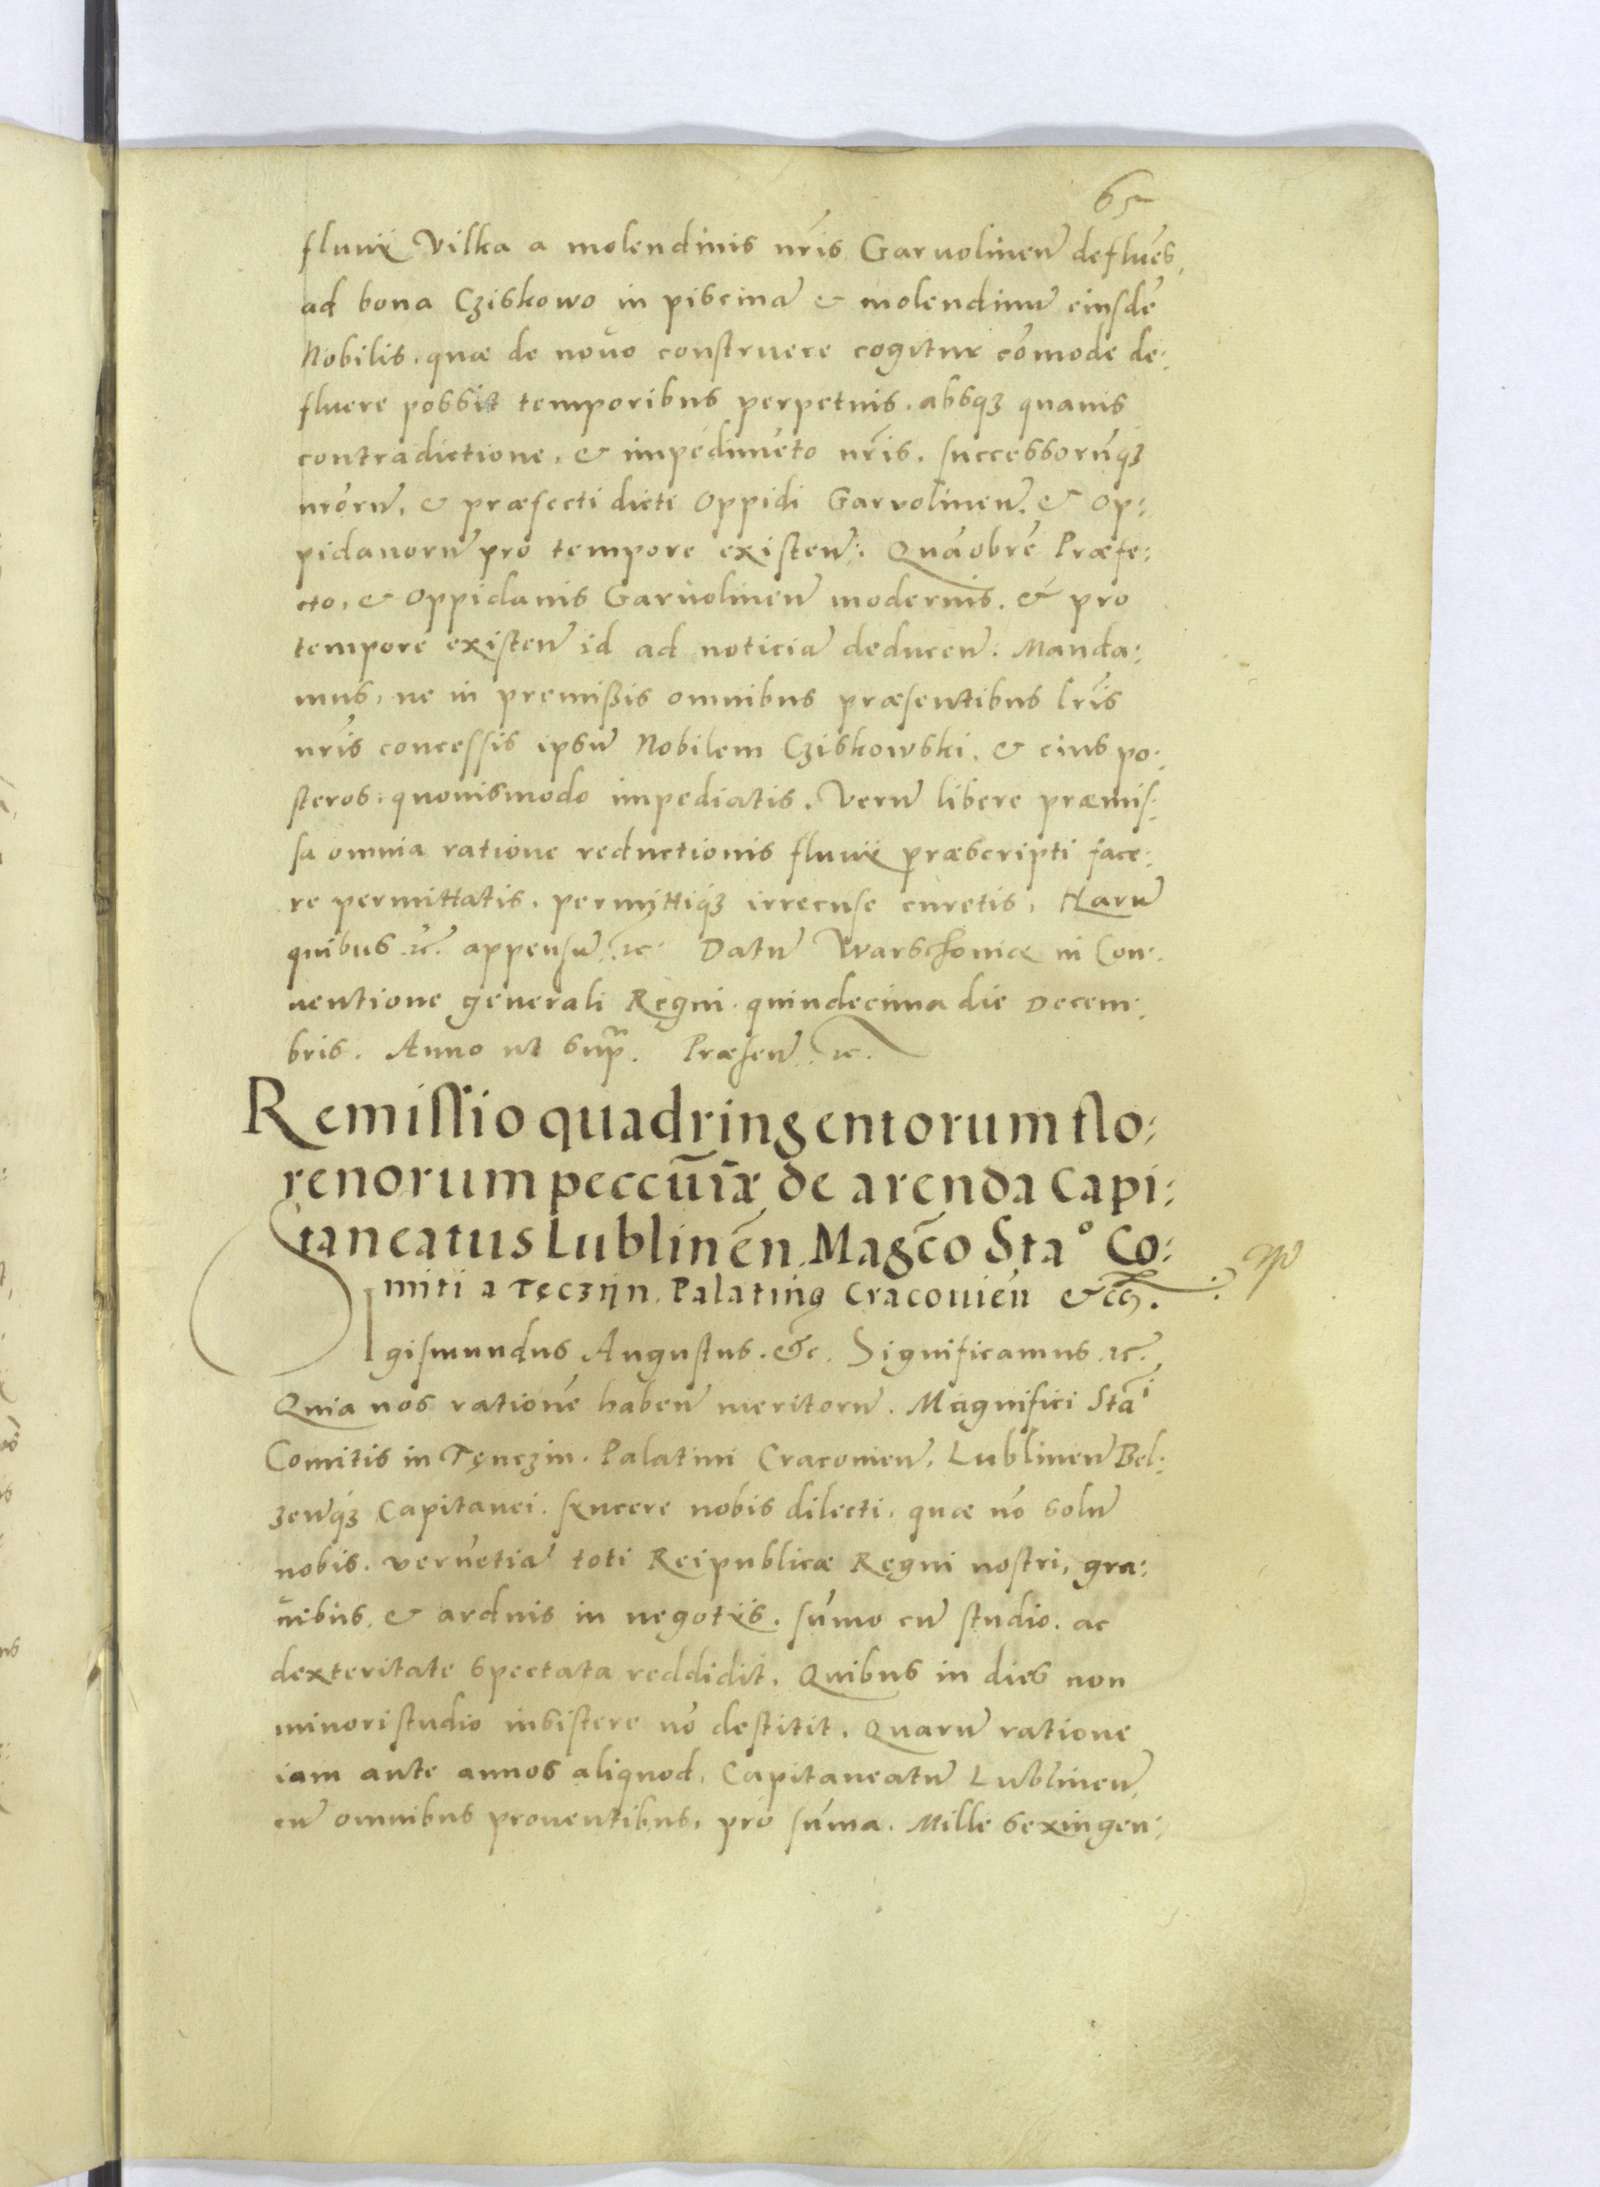 65
fluuij Vilka a molendinis nr̃is Garuolineñ defluẽs,
ad bona Cziskowo in piscinã & molendinũ eiusdẽ
Nobilis. quæ de nouo construere cogitur cõmode de:
fluere possit temporibus perpetuis. absq3 quauis
contradictione. & impedimẽto nr̃is. successorũq3
nrõrũ, & præfecti dicti Oppidi Garvolineñ. & Op:
pidanorũ pro tempore existeñ: Quãobrẽ Præfe:
cto, & Oppidanis Garuolineñ modernis. & pro
tempore existeñ id ad noticiã deduceñ. Manda:
mus, ne in premißis omnibus præsentibus lr̃is
nr̃is concessis ipsũ Nobilem Cziskowski. & eius po:
steros. quouismodo impediatis. Verũ libere præmis:
sa omnia ratione reductionis fluuij præscripti face:
re permittatis. permittiq3 irrecuse curetis. Harũ
quibus ꝛc̃. appensũ ꝛc. Datũ Warschouiæ in Con:
uentione generali Regni. quindecima die Decem:
bris. Anno ut supr̃a. Præseñ ꝛc.
Remissio quadringentorum flo:
renorum peccũiæ de arenda Capi:
taneatus Lublinẽn. Magc̃o Sta° Co:
miti a Tęczyn. Palatino Cracouień &cc̃.
Sigismundus Augustus. &c̃. Significamus ꝛc̃.
Quia nos rationẽ habeñ meritorũ. Magnifici Staⁱ
Comitis in Tęnczin. Palatini Cracouieñ. Lublineñ Bel:
zeñq3 Capitanei. syncere nobis dilecti. quæ nõ solũ
nobis. verũetiã toti Reipublicæ Regni nostri, gra:
uibus, & arduis in negotijs. sũmo cũ studio. ac
dexteritate spectata reddidit. Quibus in dies non
minori studio insistere nõ destitit. Quarũ ratione
iam ante annos aliquod, Capitaneatũ Lublineñ,
cũ omnibus prouentibus, pro sũma. Mille sexingen: